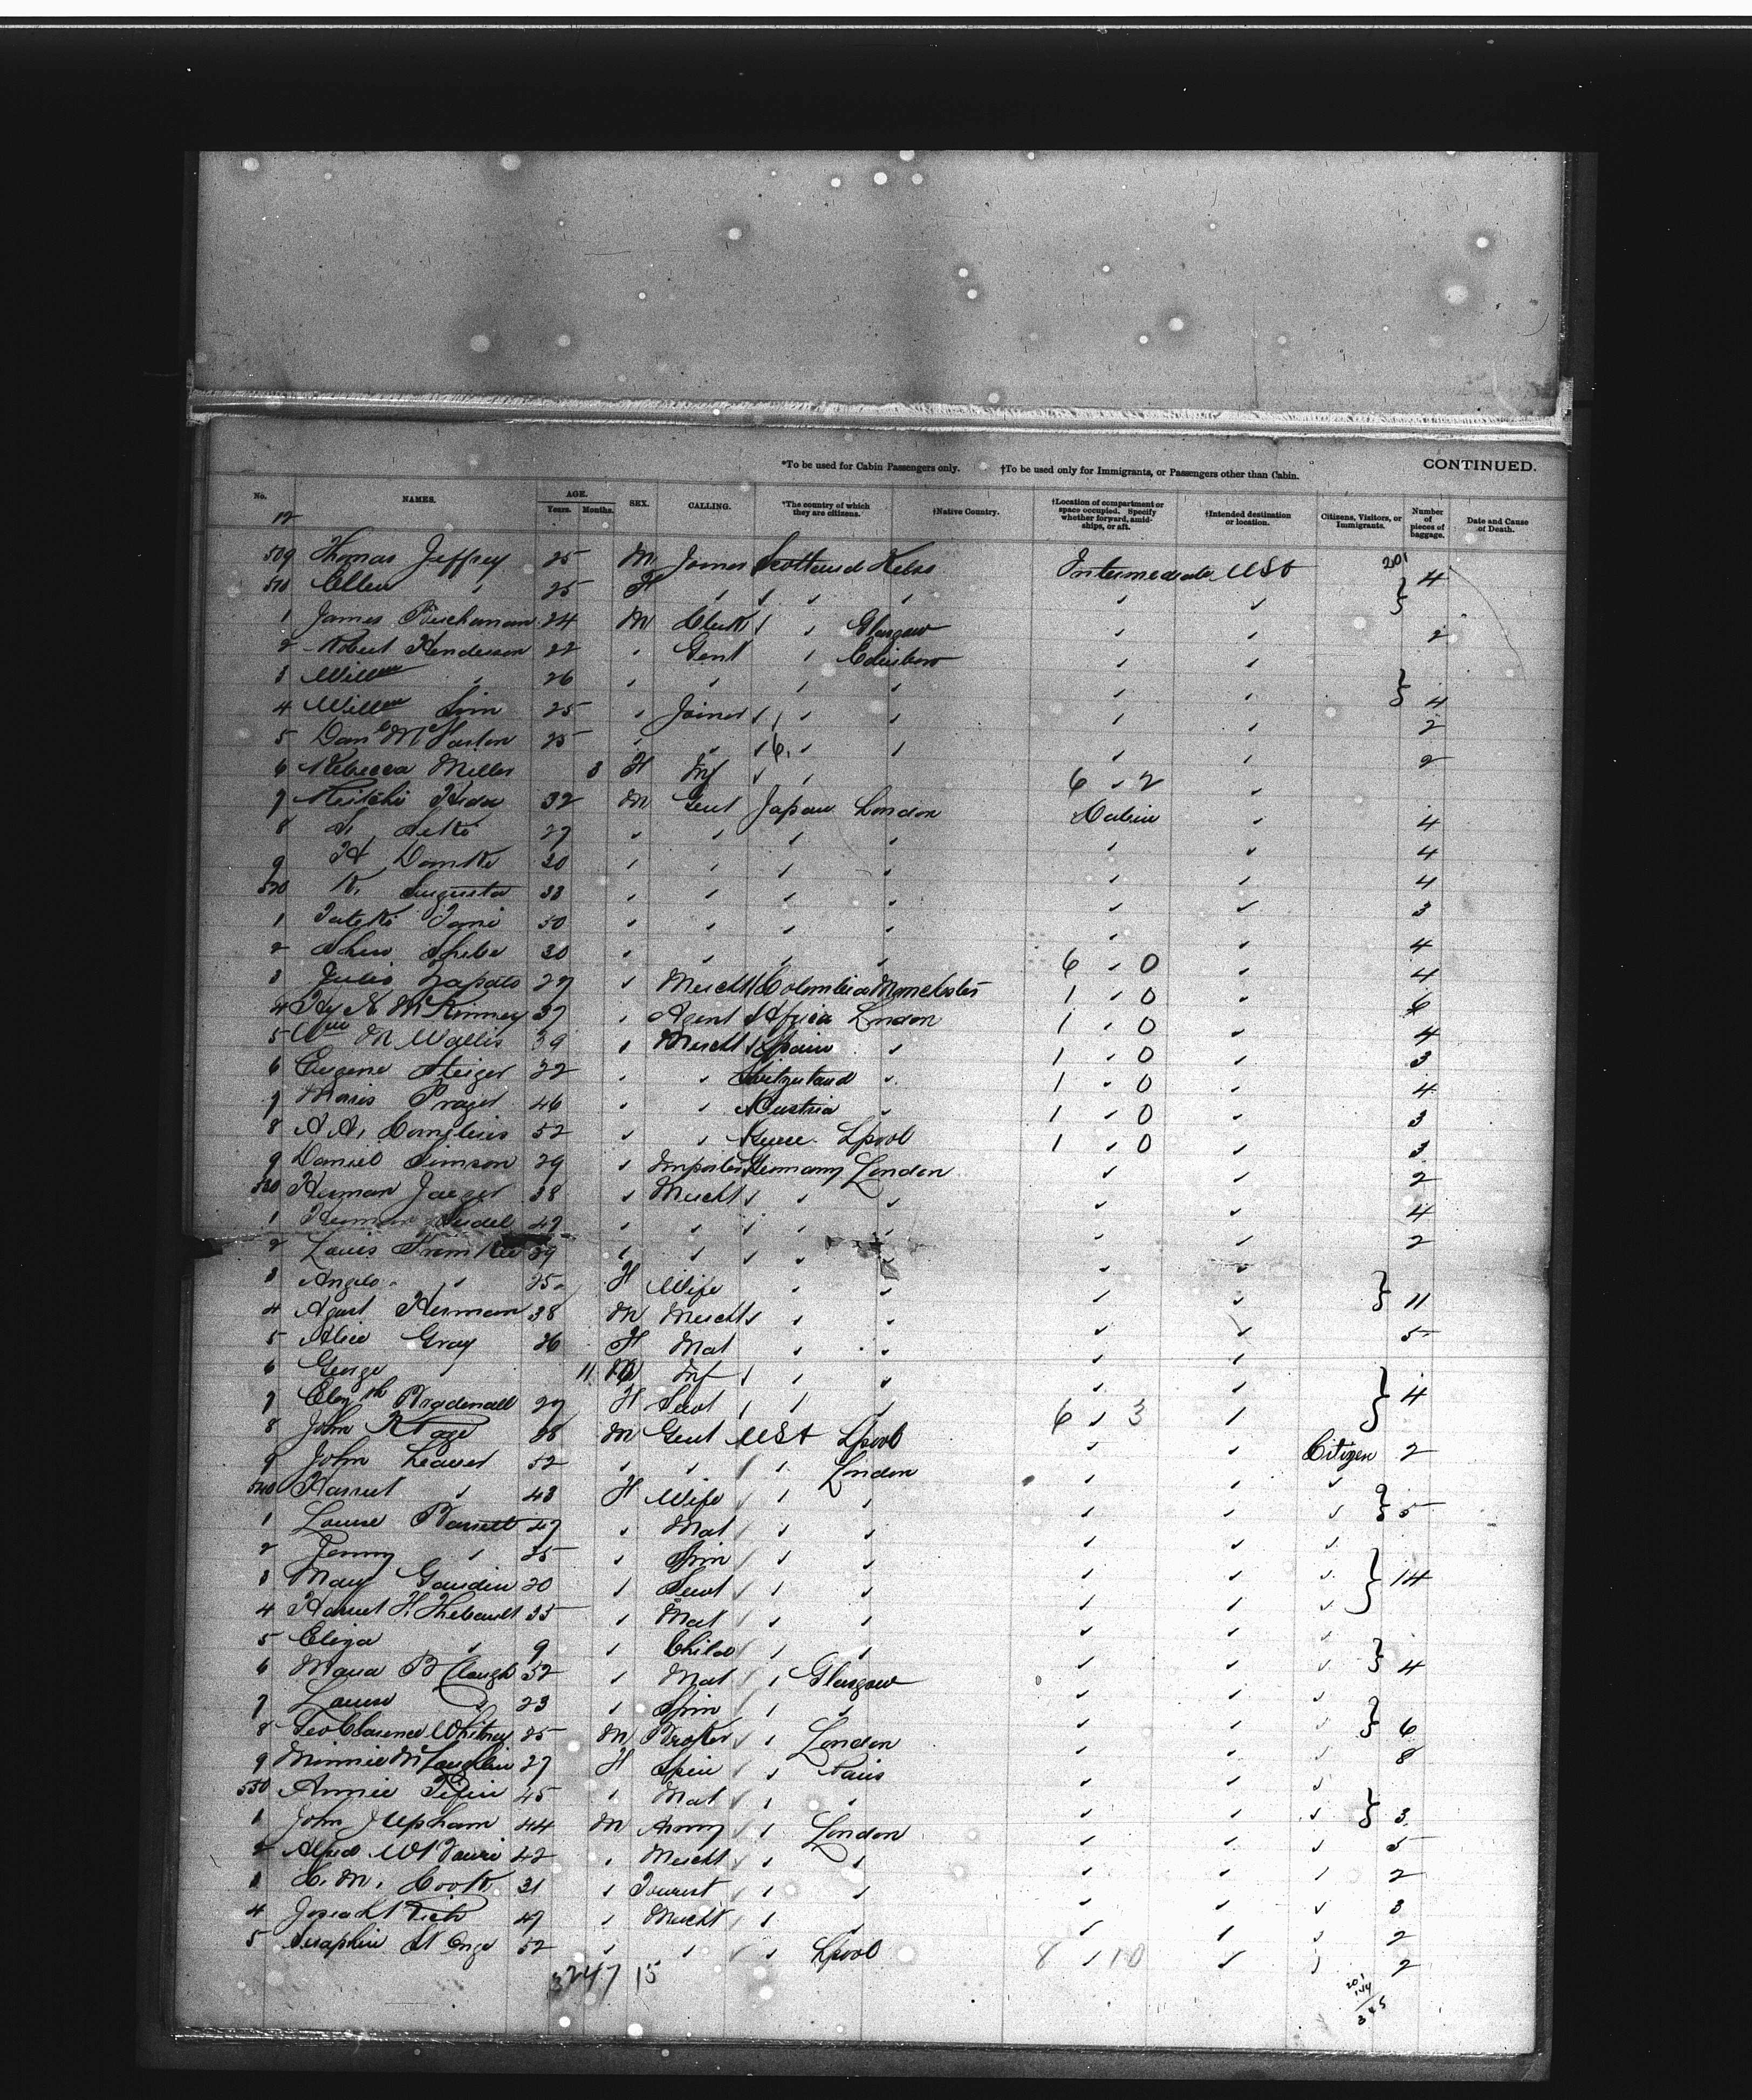 *To be used for Cabin Passengers only. †To be used only for Immigrants, or Passengers other than Cabin. CONTINUED.
No. NAMES. AGE. Years. Months. SEX. CALLING. *The country of which they are citizens. †Native Country. †Location of compartment or space occupied. Specify whether forward, amidships, or aft. †Intended destination or location. Citizens, Visitors, or Immigrants. Number of pieces of baggage. Date and Cause of Death.
12
509 Thomas Jeffrey 25 M Joiner Scotland Kelso Intermediate USA 201
510 Ellen " 25 F " " " " " " } 4
1 James Buchanan 24 M Clerk " Glasgow " " 2
2 Robert Henderson 22 " Gent " Edinboro " "
3 Willm " 26 " " " " " " } 4
4 Willm Sim 25 " Joiner " " " " 2
5 Danl 25 " " 6 " " " " 2
6 Rebecca Miller 8 F Inf " " 6 " 2 "
7 32 M Gent Japan London Cabin " 4
8 S. Seki 27 " " " " " " 4
9 H 30 " " " " " " 4
520 K. 33 " " " " " " 3
1 50 " " " " " " 4
2 30 " " " " 6 " 0 " 4
3 Julio Zapato 27 " Mercht Colombia Manchester 1 " 0 " 6
4 Hy McKinney 37 " Agent Africa London 1 " 0 " 4
5 Wm M Wallis 39 " Mercht Spain " 1 " 0 " 3
6 Eugene Steiger 22 " " Switzerland " 1 " 0 " 4
7 Moris Prager 46 " " Austria " 1 " 0 " 3
8 A A, 52 " " Lpool 1 " 0 " 3
9 Daniel Simson 29 " Importer Germany London " " 2
530 Herman Jaeger 38 " Mercht " " " " 4
1 Herman Seidel 47 " " " " " " 2
2 Louis 39 " " " " " "
3 Angelo " 25 F Wife " " " " } 11
4 Agust Herman 38 M Mercht " " " " 5
5 Alice Gray 26 F Mat " " " "
6 George 11 M Inf " " " "
7 Elizth 27 F Servt " " 6 " 3 " } 4
8 John 38 M Gent USA Lpool " " Citizen 2
9 John Leaver 52 " " " London " " "
540 Harriet " 43 F Wife " " " " " } 5
1 Louise Barrett 47 " Mat " " " " "
2 Jenny " 25 " Spin " " " " "
3 Mary Gaudin 20 " Servt " " " " " } 14
4 Harriet H. Thebault 35 " Mat " " " " "
5 Eliza " 9 " Child " " " " " } 4
6 Maria B Clough 52 " Mat " Glasgow " " "
7 Louise " 23 " Spin " " " " " } 6
8 Geo Clarence Whitney 25 M Broker " London " " " 8
9 Minnie McLaughlin 27 F Spin " Paris " " "
550 Annie 45 " Mat " " " " " } 3
1 John J Upham 44 M Army " London " " " 5
2 Alfred 42 " Mercht " " " " " 2
3 C. M. Cook 31 " Tourist " " " " " 3
4 Josiah 47 " Mercht " " " " " 2
5 Seraphin St Onge 52 " " " Lpool 8 " 10 " " 2
3247 15
201
144
345